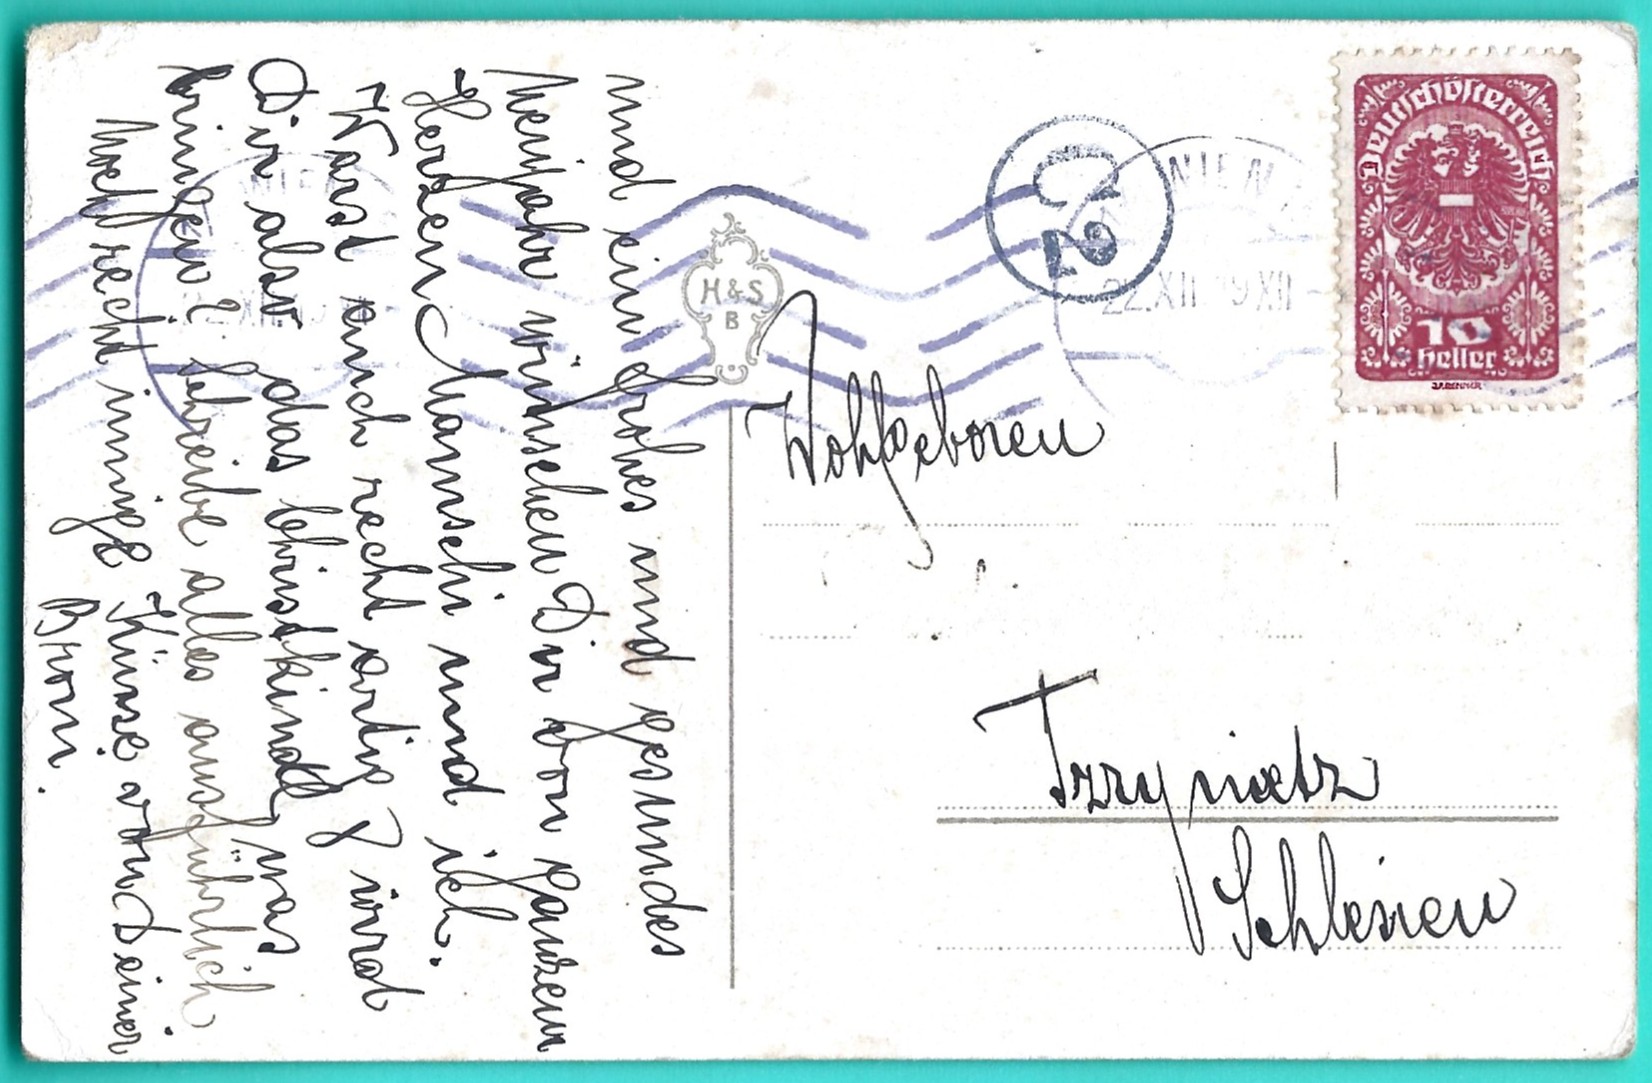 und ein frohes und gesundes
Neujahr wünschen Dir von ganzem
Herzen Mamschi und ich.
Warst auch recht artig? wird
Dir aber das Christkindl was
bringen? schreibe alles ausführlich
noch recht innige Küsse von Deiner
Bromi.
H & S
B
WIEN
22.XII 19 XII
Deutschösterreich
10
Heller
Wohlgeboren
Trzynietz
Schlesien